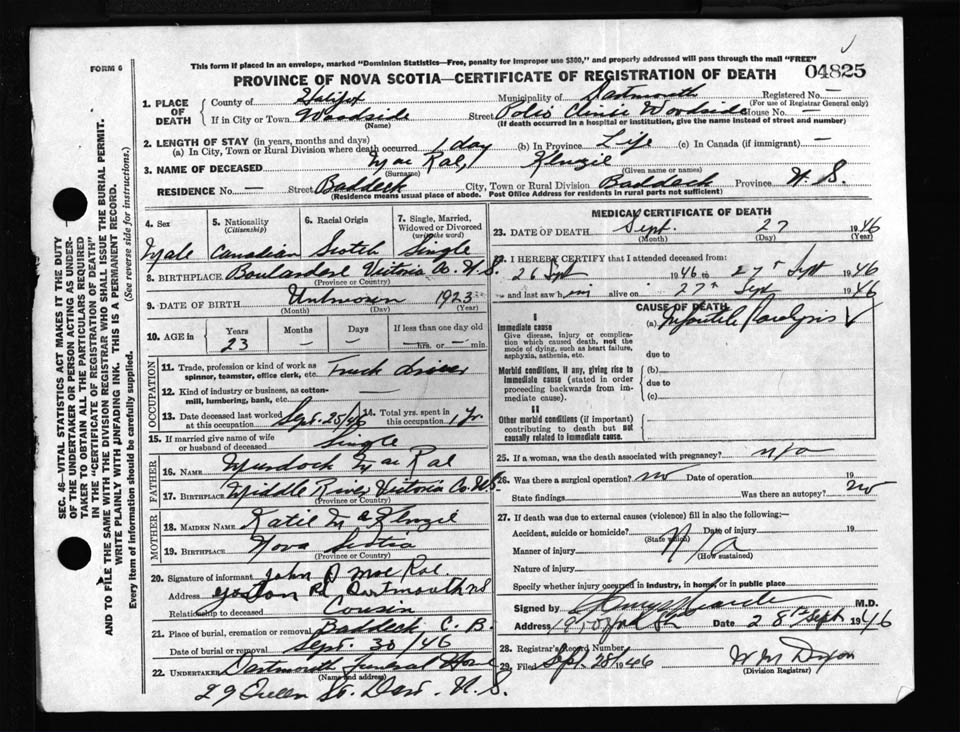 This form if placed in an envelope, marked "Dominion Statistics—Free, penalty for improper use $300," and properly addressed will pass through the mail "FREE"
FORM 6
PROVINCE OF NOVA SCOTIA—CERTIFICATE OF REGISTRATION OF DEATH
04825
1. PLACE OF DEATH
County of Halifax Municipality of Dartmouth Registered No. —
(For use of Registrar General only)
If in City or Town Woodside Street Polio Clinic Woodside House No. —
(Name) (If death occurred in a hospital or institution, give the name instead of street and number)
2. LENGTH OF STAY (in years, months and days)
(a) In City, Town or Rural Division where death occurred 1 day (b) in Province Life (c) In Canada (if immigrant) —
3. NAME OF DECEASED Mac Rae, Kenzie
(Surname) (Given name or names)
RESIDENCE No. — Street Baddeck City, Town or Rural Division Baddeck Province N. S.
(Residence means usual place of abode. Post Office Address for residents in rural parts not sufficient)
4. Sex
Male
5. Nationality (Citizenship)
Canadian
6. Racial Origin
Scotch
7. Single, Married, Widowed or Divorced (write the word)
Single
8. BIRTHPLACE Victoria Co. N. S.
(Province or Country)
9. DATE OF BIRTH Unknown 1923
(Month) (Day) (Year)
10. AGE in Years Months Days If less than one day old
23 — — — hrs. or — min.
OCCUPATION
11. Trade, profession or kind of work as spinner, teamster, office clerk, etc. Truck driver
12. Kind of industry or business, as cotton-mill, lumbering, bank, etc.
13. Date deceased last worked at this occupation Sept. 25/46
14. Total yrs. spent in this occupation 1 yr.
15. If married give name of wife or husband of deceased Single
FATHER
16. NAME Murdock Mac Rae
17. BIRTHPLACE Middle River Victoria Co. N.S.
(Province or Country)
MOTHER
18. MAIDEN NAME Katie McKenzie
19. BIRTHPLACE Nova Scotia
(Province or Country)
20. Signature of informant John D Mac Rae
Address Rd, Dartmouth NS
Relationship to deceased Cousin
21. Place of burial, cremation or removal Baddeck C. B.
Date of burial or removal Sept. 30/46
22. UNDERTAKER Dartmouth Funeral Home
(Name and address)
29 Queen St. Dart. N. S.
MEDICAL CERTIFICATE OF DEATH
23. DATE OF DEATH Sept. 27 1946
(Month) (Day) (Year)
I HEREBY CERTIFY that I attended deceased from:
26 Sept 1946 to 27th Sept 1946
and last saw him alive on 27th Sept 1946
CAUSE OF DEATH
I
Immediate cause (a) Infantile Paralysis
Give disease, injury or complication which caused death, not the mode of dying, such as heart failure, asphyxia, asthenia, etc.
due to
Morbid conditions, if any, giving rise to immediate cause (stated in order proceeding backwards from immediate cause).
(b)
due to
(c)
II
Other morbid conditions (if important) contributing to death but not causally related to immediate cause.
25. If a woman, was the death associated with pregnancy? n/a
26. Was there a surgical operation? no Date of operation 19
State findings Was there an autopsy? no
27. If death was due to external causes (violence) fill in also the following:—
Accident, suicide or homicide? Date of injury 19
(State which)
Manner of injury N/A
(How sustained)
Nature of injury
Specify whether injury occurred in industry, in home, or in public place
Signed by M.D.
Address Date 28th Sept 1946
28. Registrar's Record Number
29. Filed Sept. 28 1946 W M Dixon
(Division Registrar)
SEC. 46—VITAL STATISTICS ACT MAKES IT THE DUTY
OF THE UNDERTAKER OR PERSON ACTING AS UNDER-
TAKER TO OBTAIN ALL THE PARTICULARS REQUIRED
IN THE "CERTIFICATE OF REGISTRATION OF DEATH"
AND TO FILE THE SAME WITH THE DIVISION REGISTRAR WHO SHALL ISSUE THE BURIAL PERMIT.
WRITE PLAINLY WITH UNFADING INK. THIS IS A PERMANENT RECORD.
Every item of information should be carefully supplied. (See reverse side for instructions.)